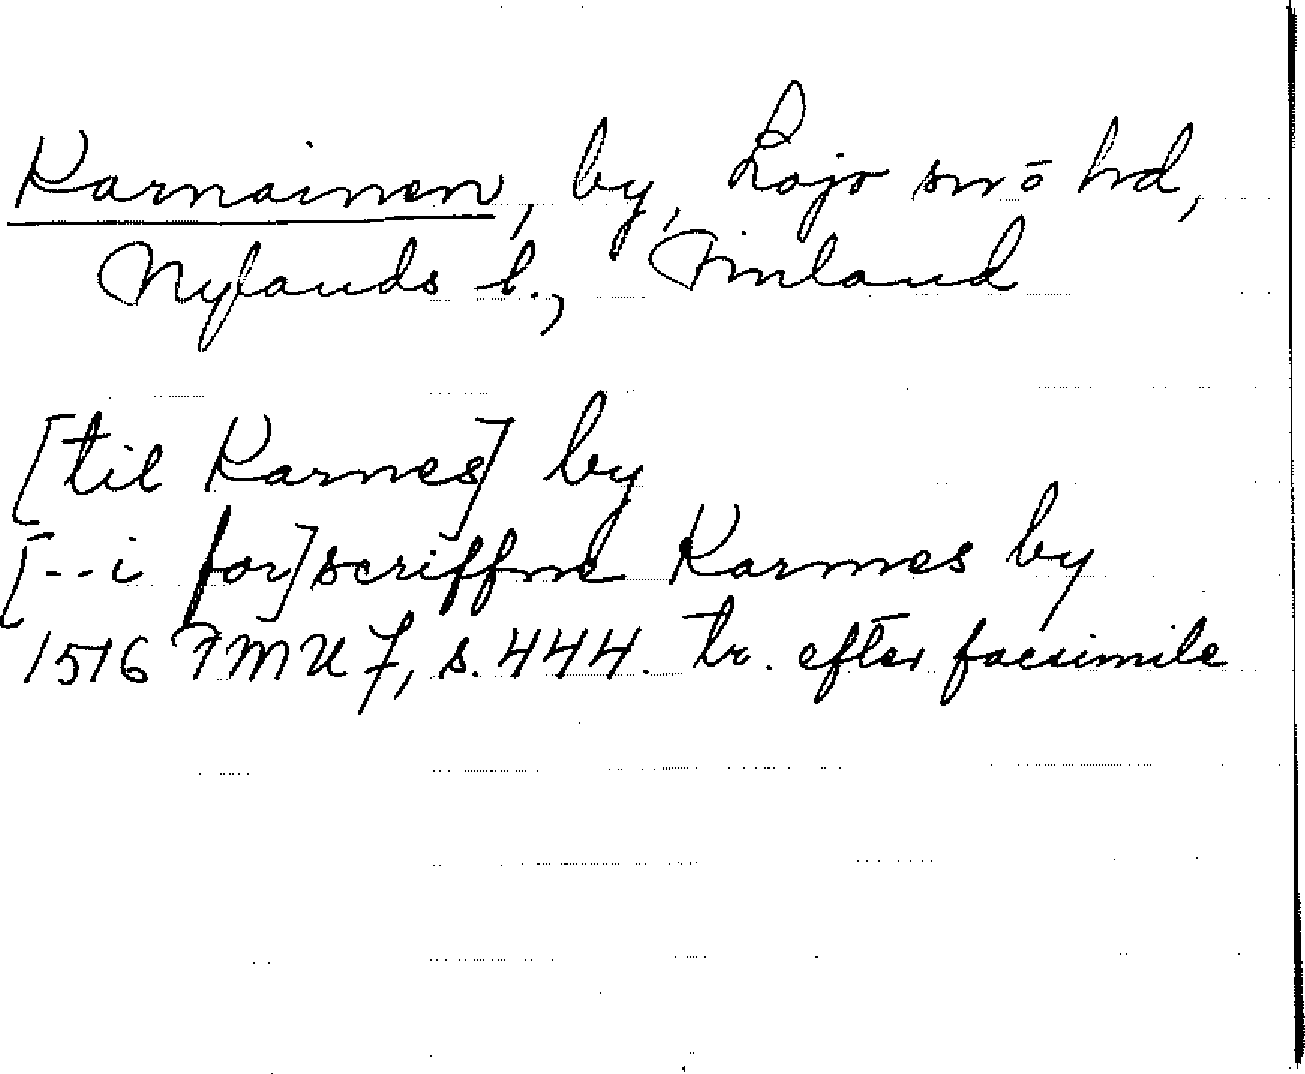 Karnainen, by, Lojo sn o hd,
Nylands l., Finland
[til Karnes] by
[--i for]scriffne Karnes by
1516 FMU 7, s. 444. tr. efter facsimile